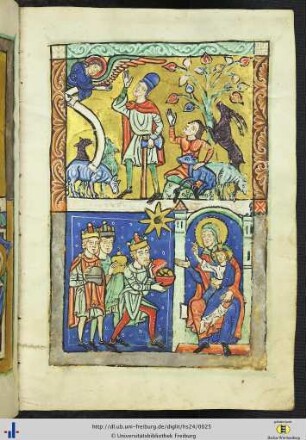 http://dl.ub.uni-freiburg.de/diglit/hs24/0025
© Universitätsbibliothek Freiburg